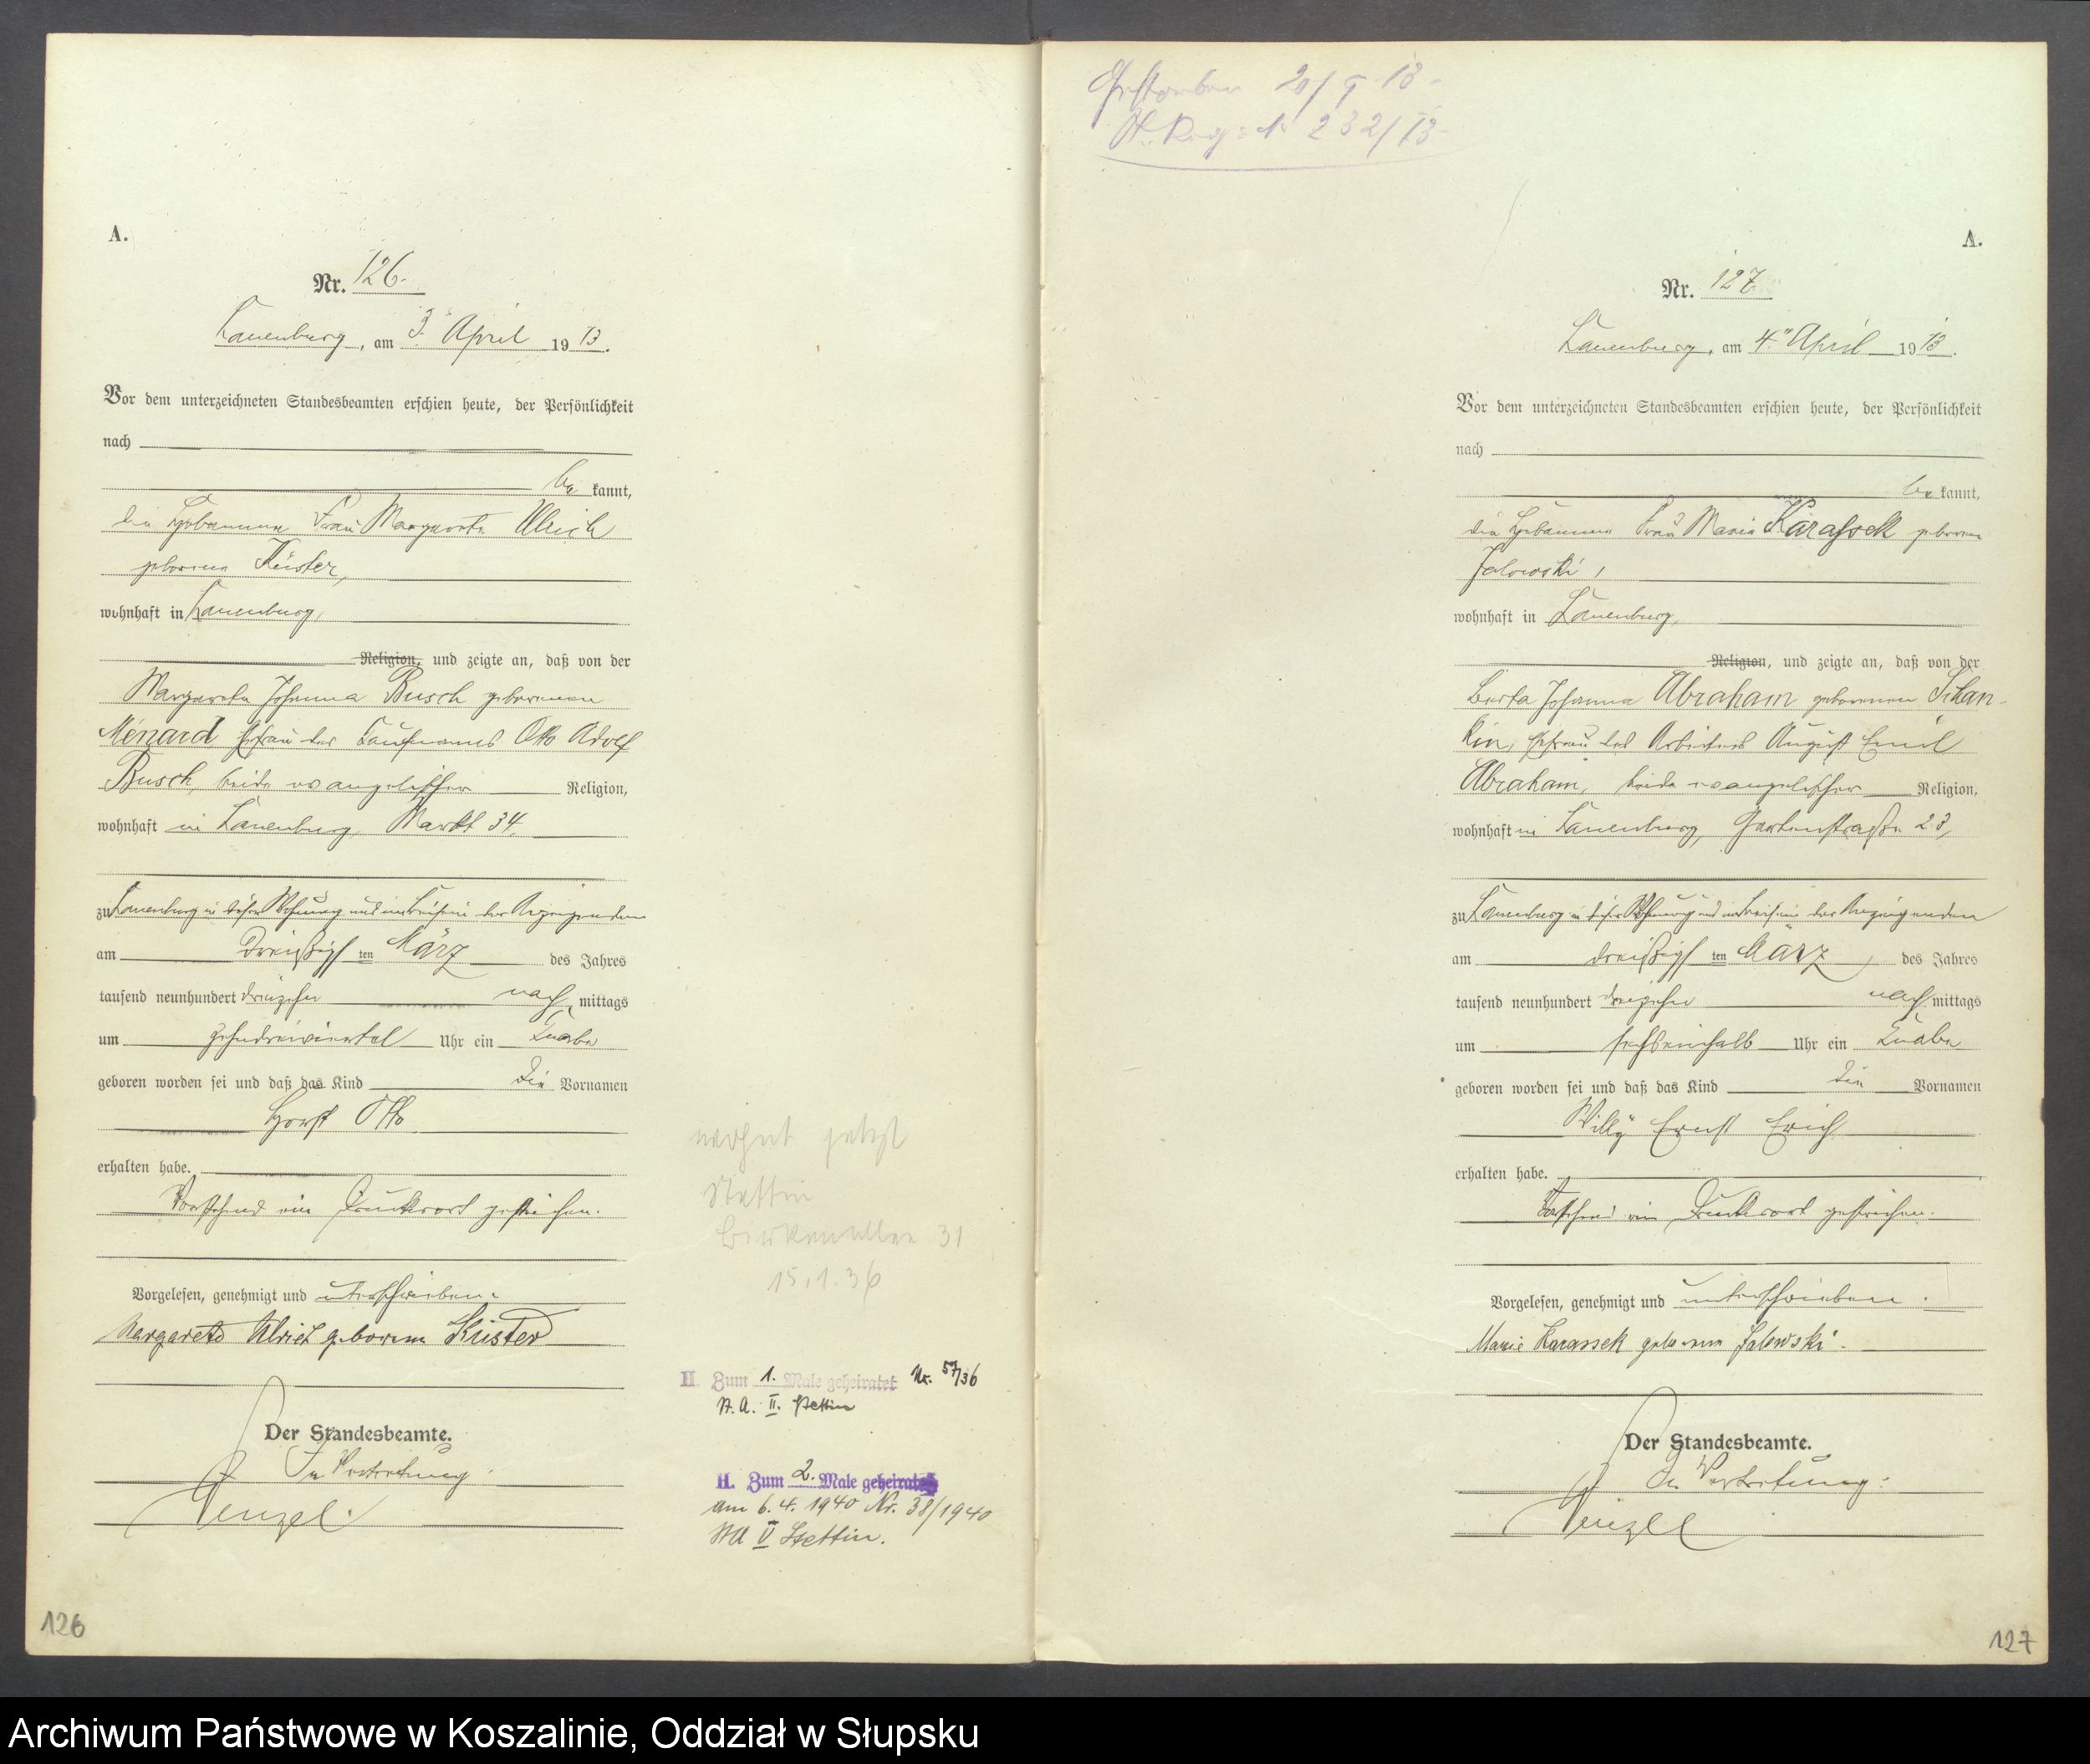 A.
Nr. 126.
Lauenburg, am 3. April 1913.
Vor dem unterzeichneten Standesbeamten erschien heute, der Persönlichkeit
nach
be kannt,
die Hebamme Frau Margarete Ulrich
geborene Küster,
wohnhaft in Lauenburg,
Religion, und zeigte an, daß von der
Margarete Johanna Busch geborenen
Menard Ehefrau des Kaufmanns Otto Adolf
Busch, beide evangelischer Religion,
wohnhaft in Lauenburg, Markt 34,
zu Lauenburg in dieser Wohnung und im Beisein der Anzeigenden
am dreißigsten März des Jahres
tausend neunhundert dreizehn nach mittags
um zehndreiviertel Uhr ein Knabe
geboren worden sei und daß das Kind die Vornamen
Horst Otto
erhalten habe.
Vorstehend ein Druckwort gestrichen.
Vorgelesen, genehmigt und unterschrieben.
Margarete Ulrich geborene Küster
Der Standesbeamte.
In Vertretung:
Wenzel.
wohnt jetzt
Stettin
Birkenallee 31
15.1.36
H. Zum 1. Male geheiratet Nr. 57/36
St. A. II. Stettin
H. Zum 2. Male geheiratet
am 6.4.1940 Nr. 38/1940
StA II Stettin.
126
Gestorben 20/ 13
St. Reg. 232/13
A.
Nr. 127
Lauenburg, am 4. April 1913.
Vor dem unterzeichneten Standesbeamten erschien heute, der Persönlichkeit
nach
be kannt,
die Hebamme Frau Marie Karassek geborene
Jalowski,
wohnhaft in Lauenburg,
Religion, und zeigte an, daß von der
Berta Johanna Abraham geborenen Schan-
kin, Ehefrau des Arbeiters August Emil
Abraham, beide evangelischer Religion,
wohnhaft in Lauenburg, Gartenstraße 23,
zu Lauenburg in dieser Wohnung und im Beisein der Anzeigenden
am dreißigsten März des Jahres
tausend neunhundert dreizehn nach mittags
um sechseinhalb Uhr ein Knabe
geboren worden sei und daß das Kind die Vornamen
Willy Ernst Erich
erhalten habe.
Vorstehend ein Druckwort gestrichen.
Vorgelesen, genehmigt und unterschrieben.
Marie Karassek geborene Jalowski.
Der Standesbeamte.
In Vertretung:
Wenzel
127
Archiwum Państwowe w Koszalinie, Oddział w Słupsku